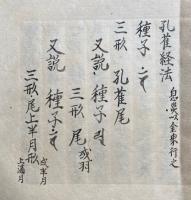 孔雀経法
息災以金剛行之
種子
三形 孔雀尾
又説 種子
三形 尾或羽
又説 種子
三形尾上半月形
或半月
上満月